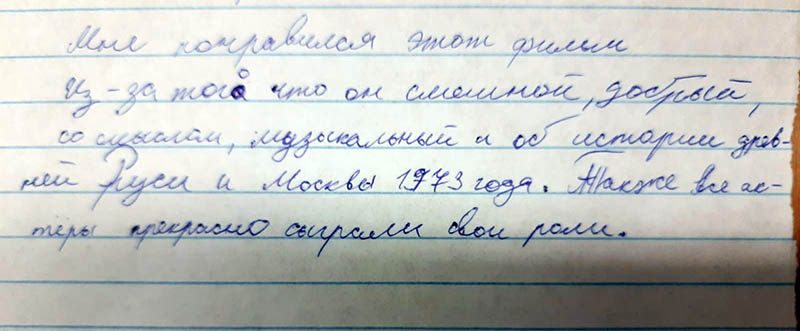 Мне понравился этот фильм
Из-за того что он смешной, добрый,
со смыслом, музыкальный и об истории древ-
ней Руси и Москвы 1973 года. Также все ак-
теры прекрасно сыграли свои роли.